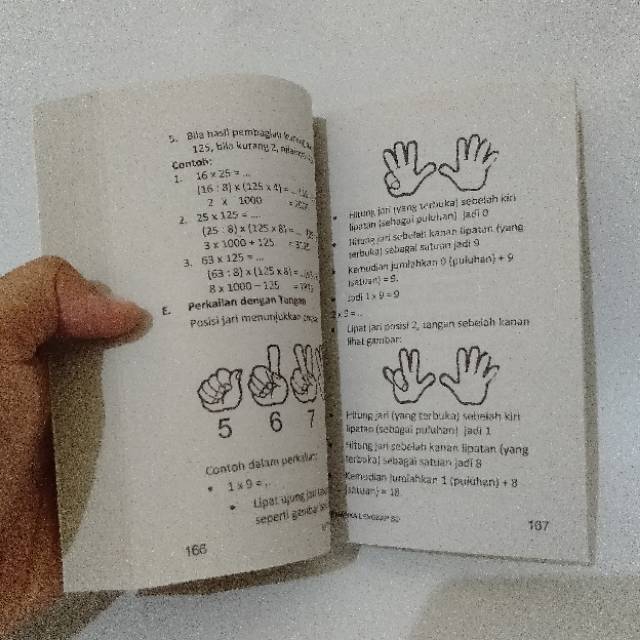 5. Bila hasil pembagian
125, bila kurang 2,
Contoh:
1. 16 x 25 = ...
(16 : 8) x (125 x 4) =
2 x 1000
2. 25 x 125 = ...
(25 : 8) x (125 x 8) =
3 x 1000 + 125
3. 63 x 125 = ...
(63 : 8) x (125 x 8) =
8 x 1000 – 125
E. Perkalian dengan Tangan
Posisi jari menunjukkan
5 6 7
Contoh dalam perkalian:
• 1 x 9 = ...
• Lipat ujung jari
seperti gambar
166
• Hitung jari (yang terbuka) sebelah kiri
lipatan (sebagai puluhan) jadi 0
• Hitung jari sebelah kanan lipatan (yang
terbuka) sebagai satuan jadi 9
• Kemudian jumlahkan 0 (puluhan) + 9
(satuan) = 9.
Jadi 1 x 9 = 9
2 x 9 = ...
• Lipat jari posisi 2, tangan sebelah kanan
lihat gambar:
• Hitung jari (yang terbuka) sebelah kiri
lipatan (sebagai puluhan) jadi 1
• Hitung jari sebelah kanan lipatan (yang
terbuka) sebagai satuan jadi 8
Kemudian jumlahkan 1 (puluhan) + 8
(satuan) = 18
LENGKAP SD
167